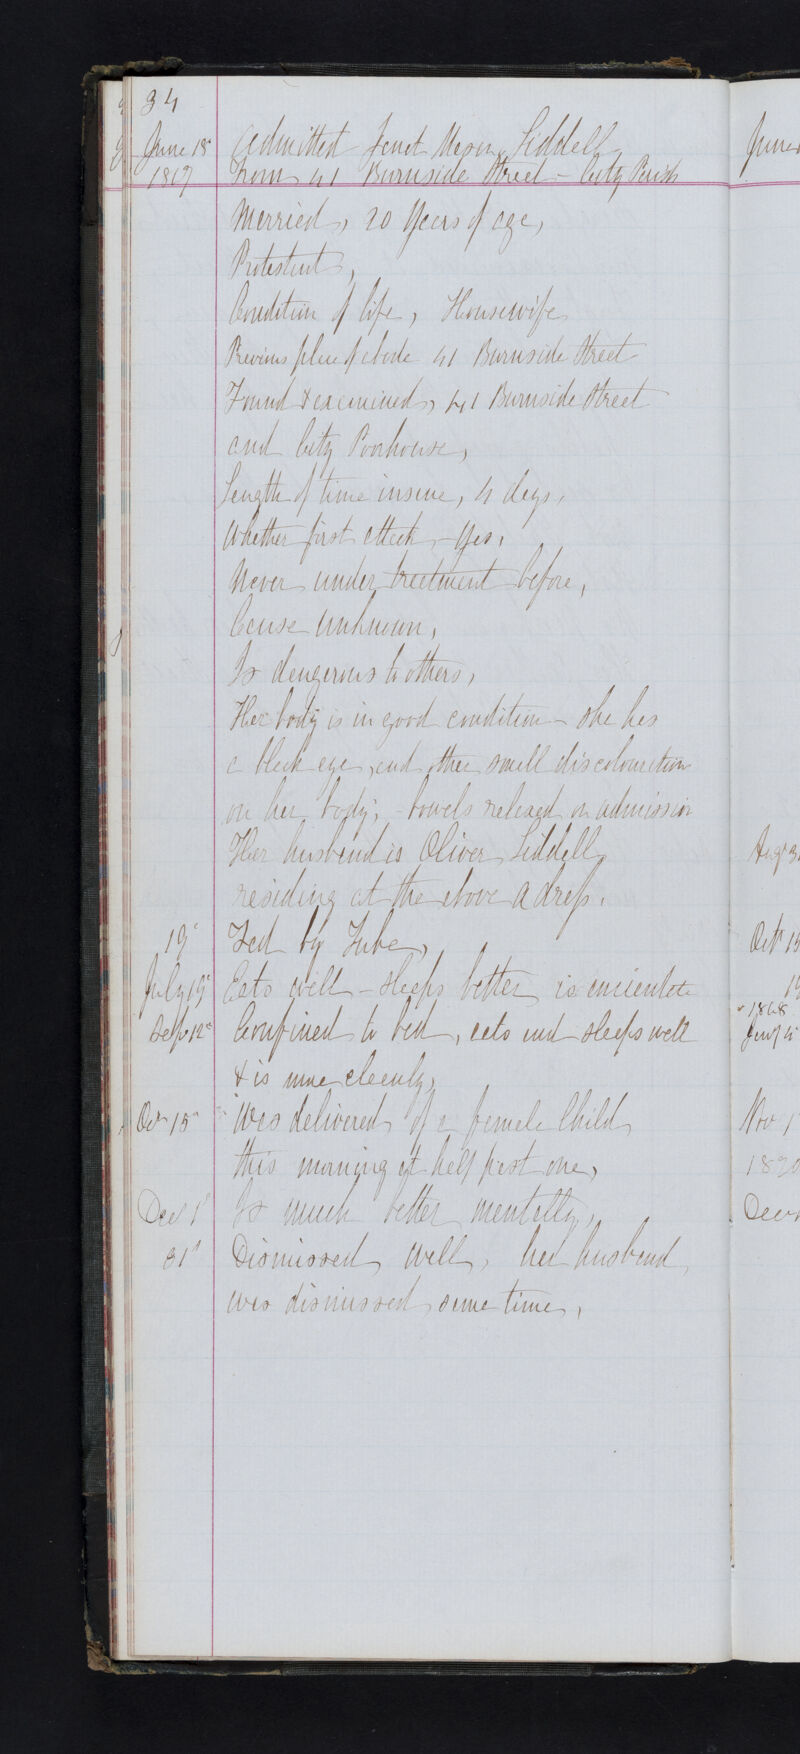 34
June 18th Admitted Janet Mason Liddell
1867 From 41 Burnside Street - City Parish
Married, 20 Years of age,
Protestant,
Condition of life, Housewife
Previous place of abode 41 Burnside Street
Found & examined, 41 Burnside Street
and City Poorhouse,
Length of time insane, 4 days,
Whether first attack - Yes,
Never under treatment before,
Cause Unknown,
Is dangerous to others,
Her body is in good condition - she has
a black eye, and other small discolouration
on her body; - bowels relaxed on admission
Her husband is Oliver Liddell
residing at the above Adress.
19th Fed by Tube,
July 19th Eats well - sleeps better is enciente
Sept 12th Confined to bed, eats and sleeps well
& is more cleanly,
Oct 15th Was delivered of a female Child
this morning at half past one,
Dec 1st Is much better mentally,
31st Dismissed well, her husband
was dismissed same time,
June
Aug 3
Oct 15
19
1868
Nov 1
1870
Dec